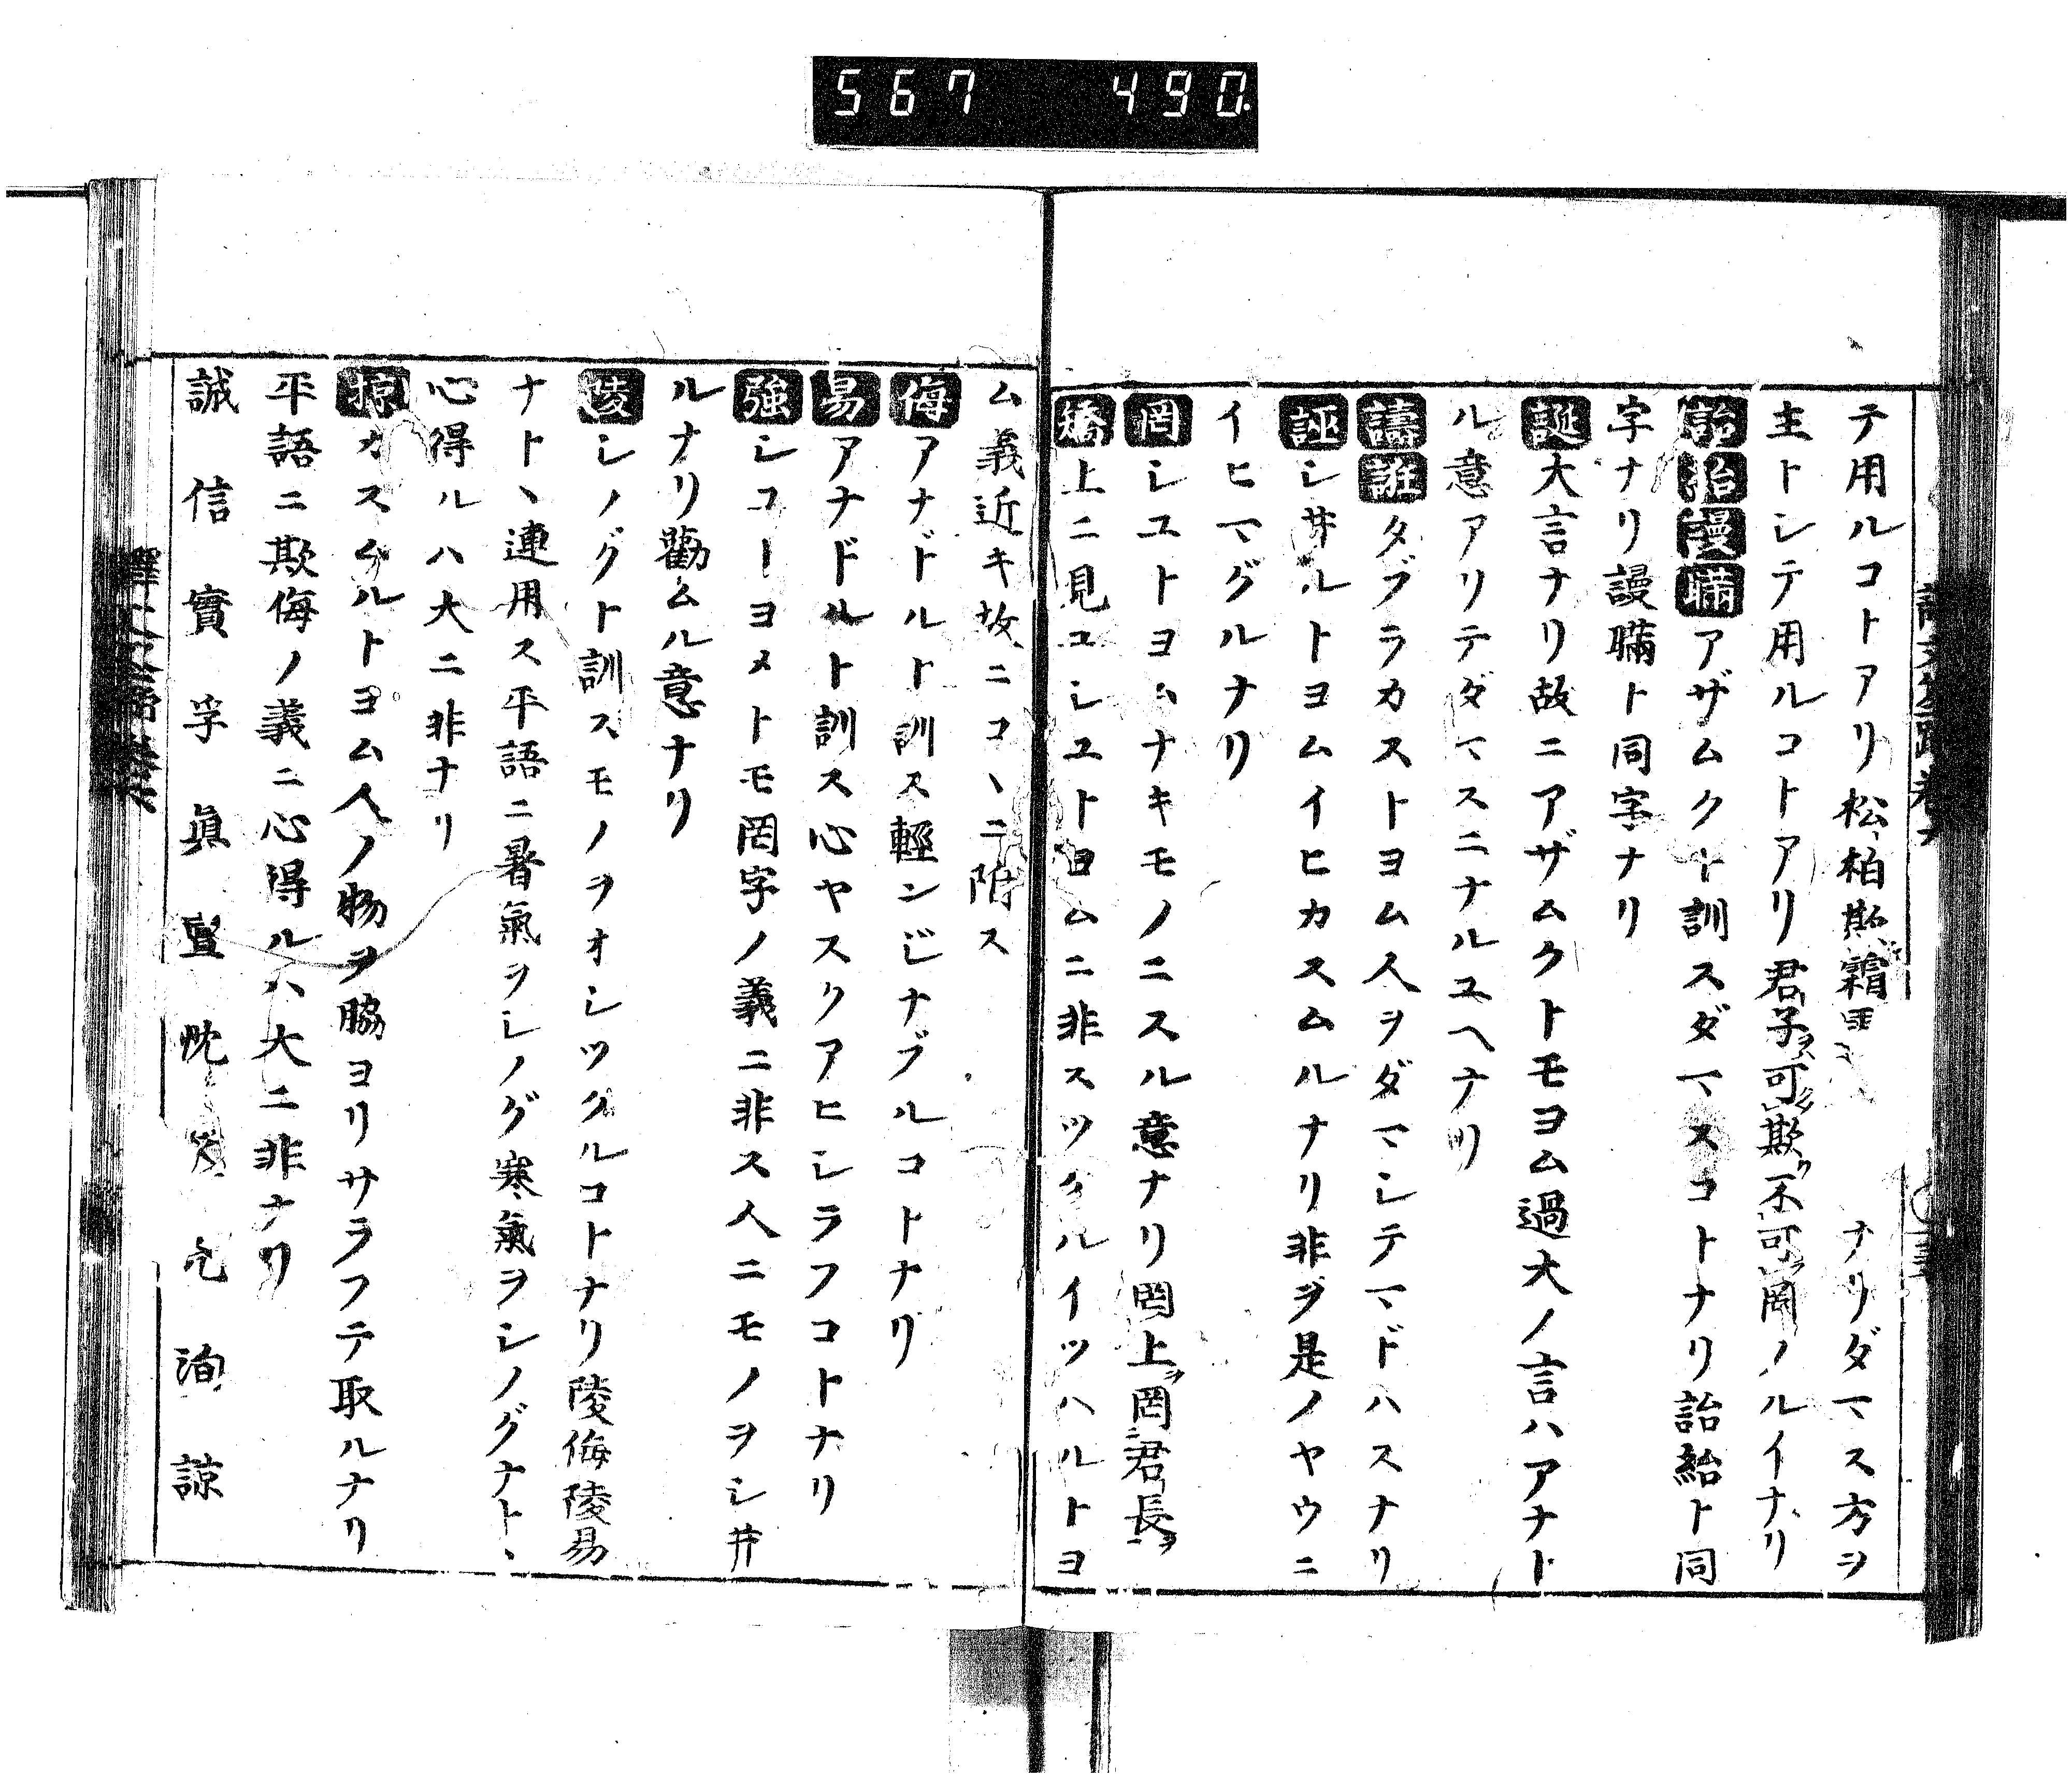 567 490
テ用ルコトアリ松柏欺霜 ナリダマス方ヲ
主トシテ用ルコトアリ君子可欺不可罔ノルイナリ
詒紿謾瞞アザムクト訓スダマスコトナリ詒紿ト同
字ナリ謾瞞ト同字ナリ
誕大言ナリ故ニアザムクトモヨム過大ノ言ハアナト
ル意アリテダマスニナルユヘナリ
譸誑タブラカストヨム人ヲダマシテマドハスナリ
誣シ井ルトヨムイヒカスムルナリ非ヲ是ノヤウニ
イヒマグルナリ
罔シユトヨムナキモノニスル意ナリ罔上罔君長
矯上ニ見ユシユトヨムニ非スツクルイツハルトヨ
ム義近キ故ニコヽニ附ス
侮アナドルト訓ス輕ンじナブルコトナリ
易アナドルト訓ス心ヤスクアヒシラフコトナリ
強シユーヨメトモ罔字ノ義ニ非ス人ニモノヲシ井
ルナリ勸ムル意ナリ
陵シノグト訓スモノヲオシツクルコトナリ陵侮陵易
ナトヽ連用ス平語ニ暑氣ヲシノグ寒氣ヲシノグナトヽ
心得ルハ大ニ非ナリ
掠カスムルトヨム人ノ物ヲ脇ヨリサラフテ取ルナリ
平語ニ欺侮ノ義ニ心得ルハ大ニ非ナリ
誠信實孚眞亶忱 允洵諒